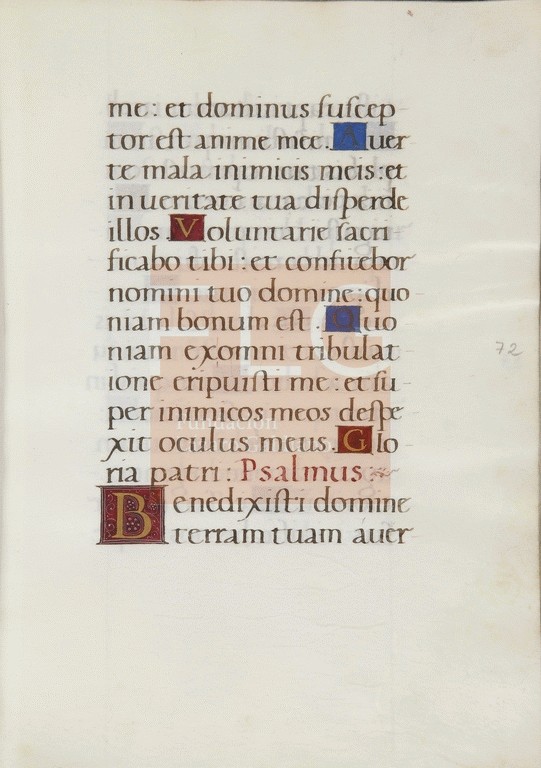 me: et dominus ſuſcep
tor eſt anime mee. Auer
te mala inimicis meis: et
in ueritate tua diſperde
illos. Voluntarie ſacri
ficabo tibi: et confitebor
nomini tuo domine: quo
niam bonum eſt. Quo
niam ex omni tribulat
ione eripuiſti me: et ſu-
per inimicos meos deſpe
xit oculus meus. Glo
ria patri: Psalmus.
Benedixiſti domine
terram tuam auer
72
FLG
Fundación